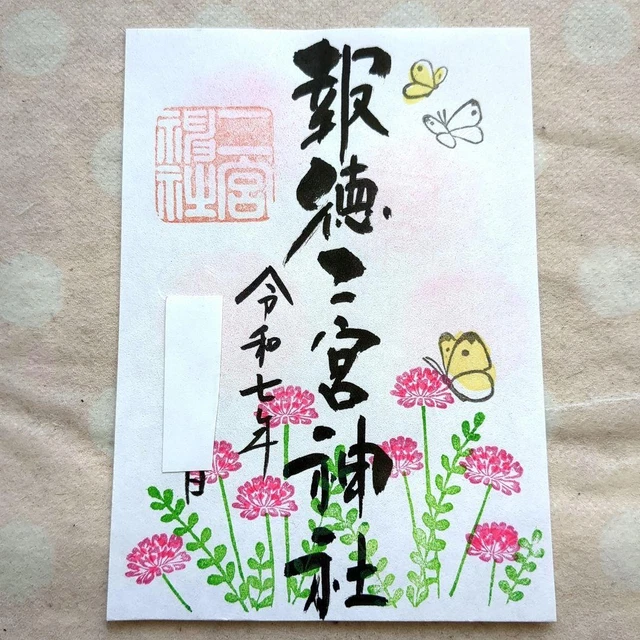 報徳二宮神社
令和七年
月
二宮神社